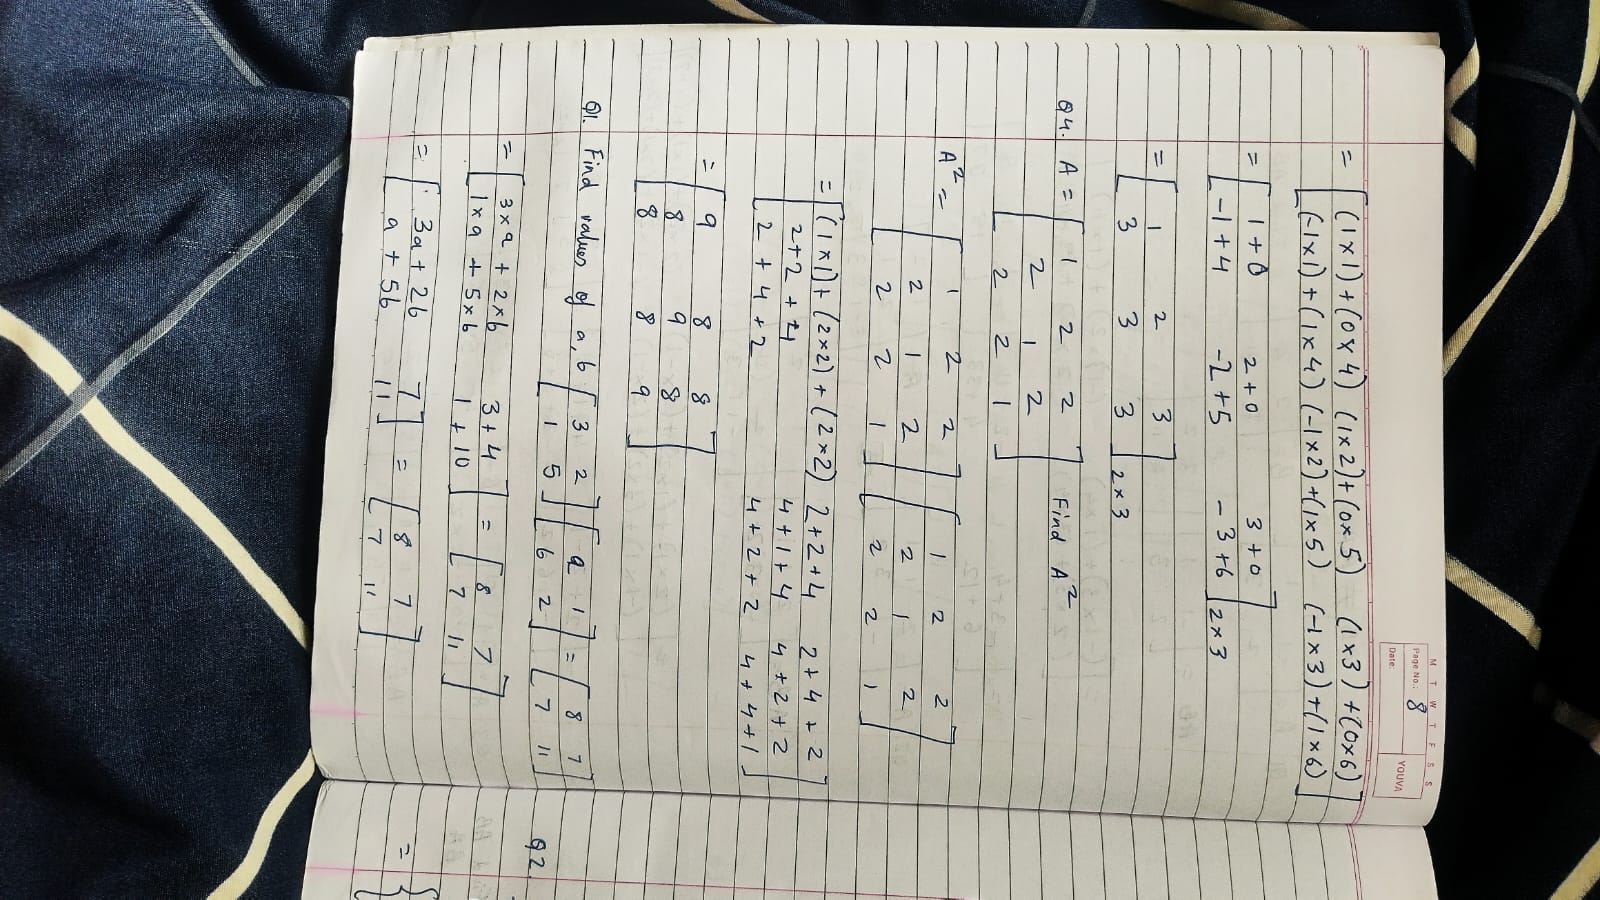 M T W T F S S
Page No.: 8
YOUVA
Date:
= [ (1×1)+(0×4) (1×2)+(0×5) (1×3)+(0×6)
(-1×1)+(1×4) (-1×2)+(1×5) (-1×3)+(1×6) ]
= [ 1+0 2+0 3+0
-1+4 -2+5 -3+6 ] 2×3
= [ 1 2 3
3 3 3 ] 2×3
Q4. A = [ 1 2 2 Find A²
2 1 2
2 2 1 ]
A² = [ 1 2 2 ] [ 1 2 2 ]
2 1 2 2 1 2
2 2 1 2 2 1
= [ (1×1)+(2×2)+(2×2) 2+2+4 2+4+2
2+2+4 4+1+4 4+2+2
2+4+2 4+2+2 4+4+1 ]
= [ 9 8 8
8 9 8
8 8 9 ]
Q1. Find values of a, b [ 3 2 ] [ a 1 ] = [ 8 7 ]
1 5 b 2 7 11
Q2
= [ 3×a + 2×b 3+4 ] = [ 8 7 ]
1×a + 5×b 1+10 7 11
= [ 3a+2b 7 ] = [ 8 7 ]
a+5b 11 7 11
= {